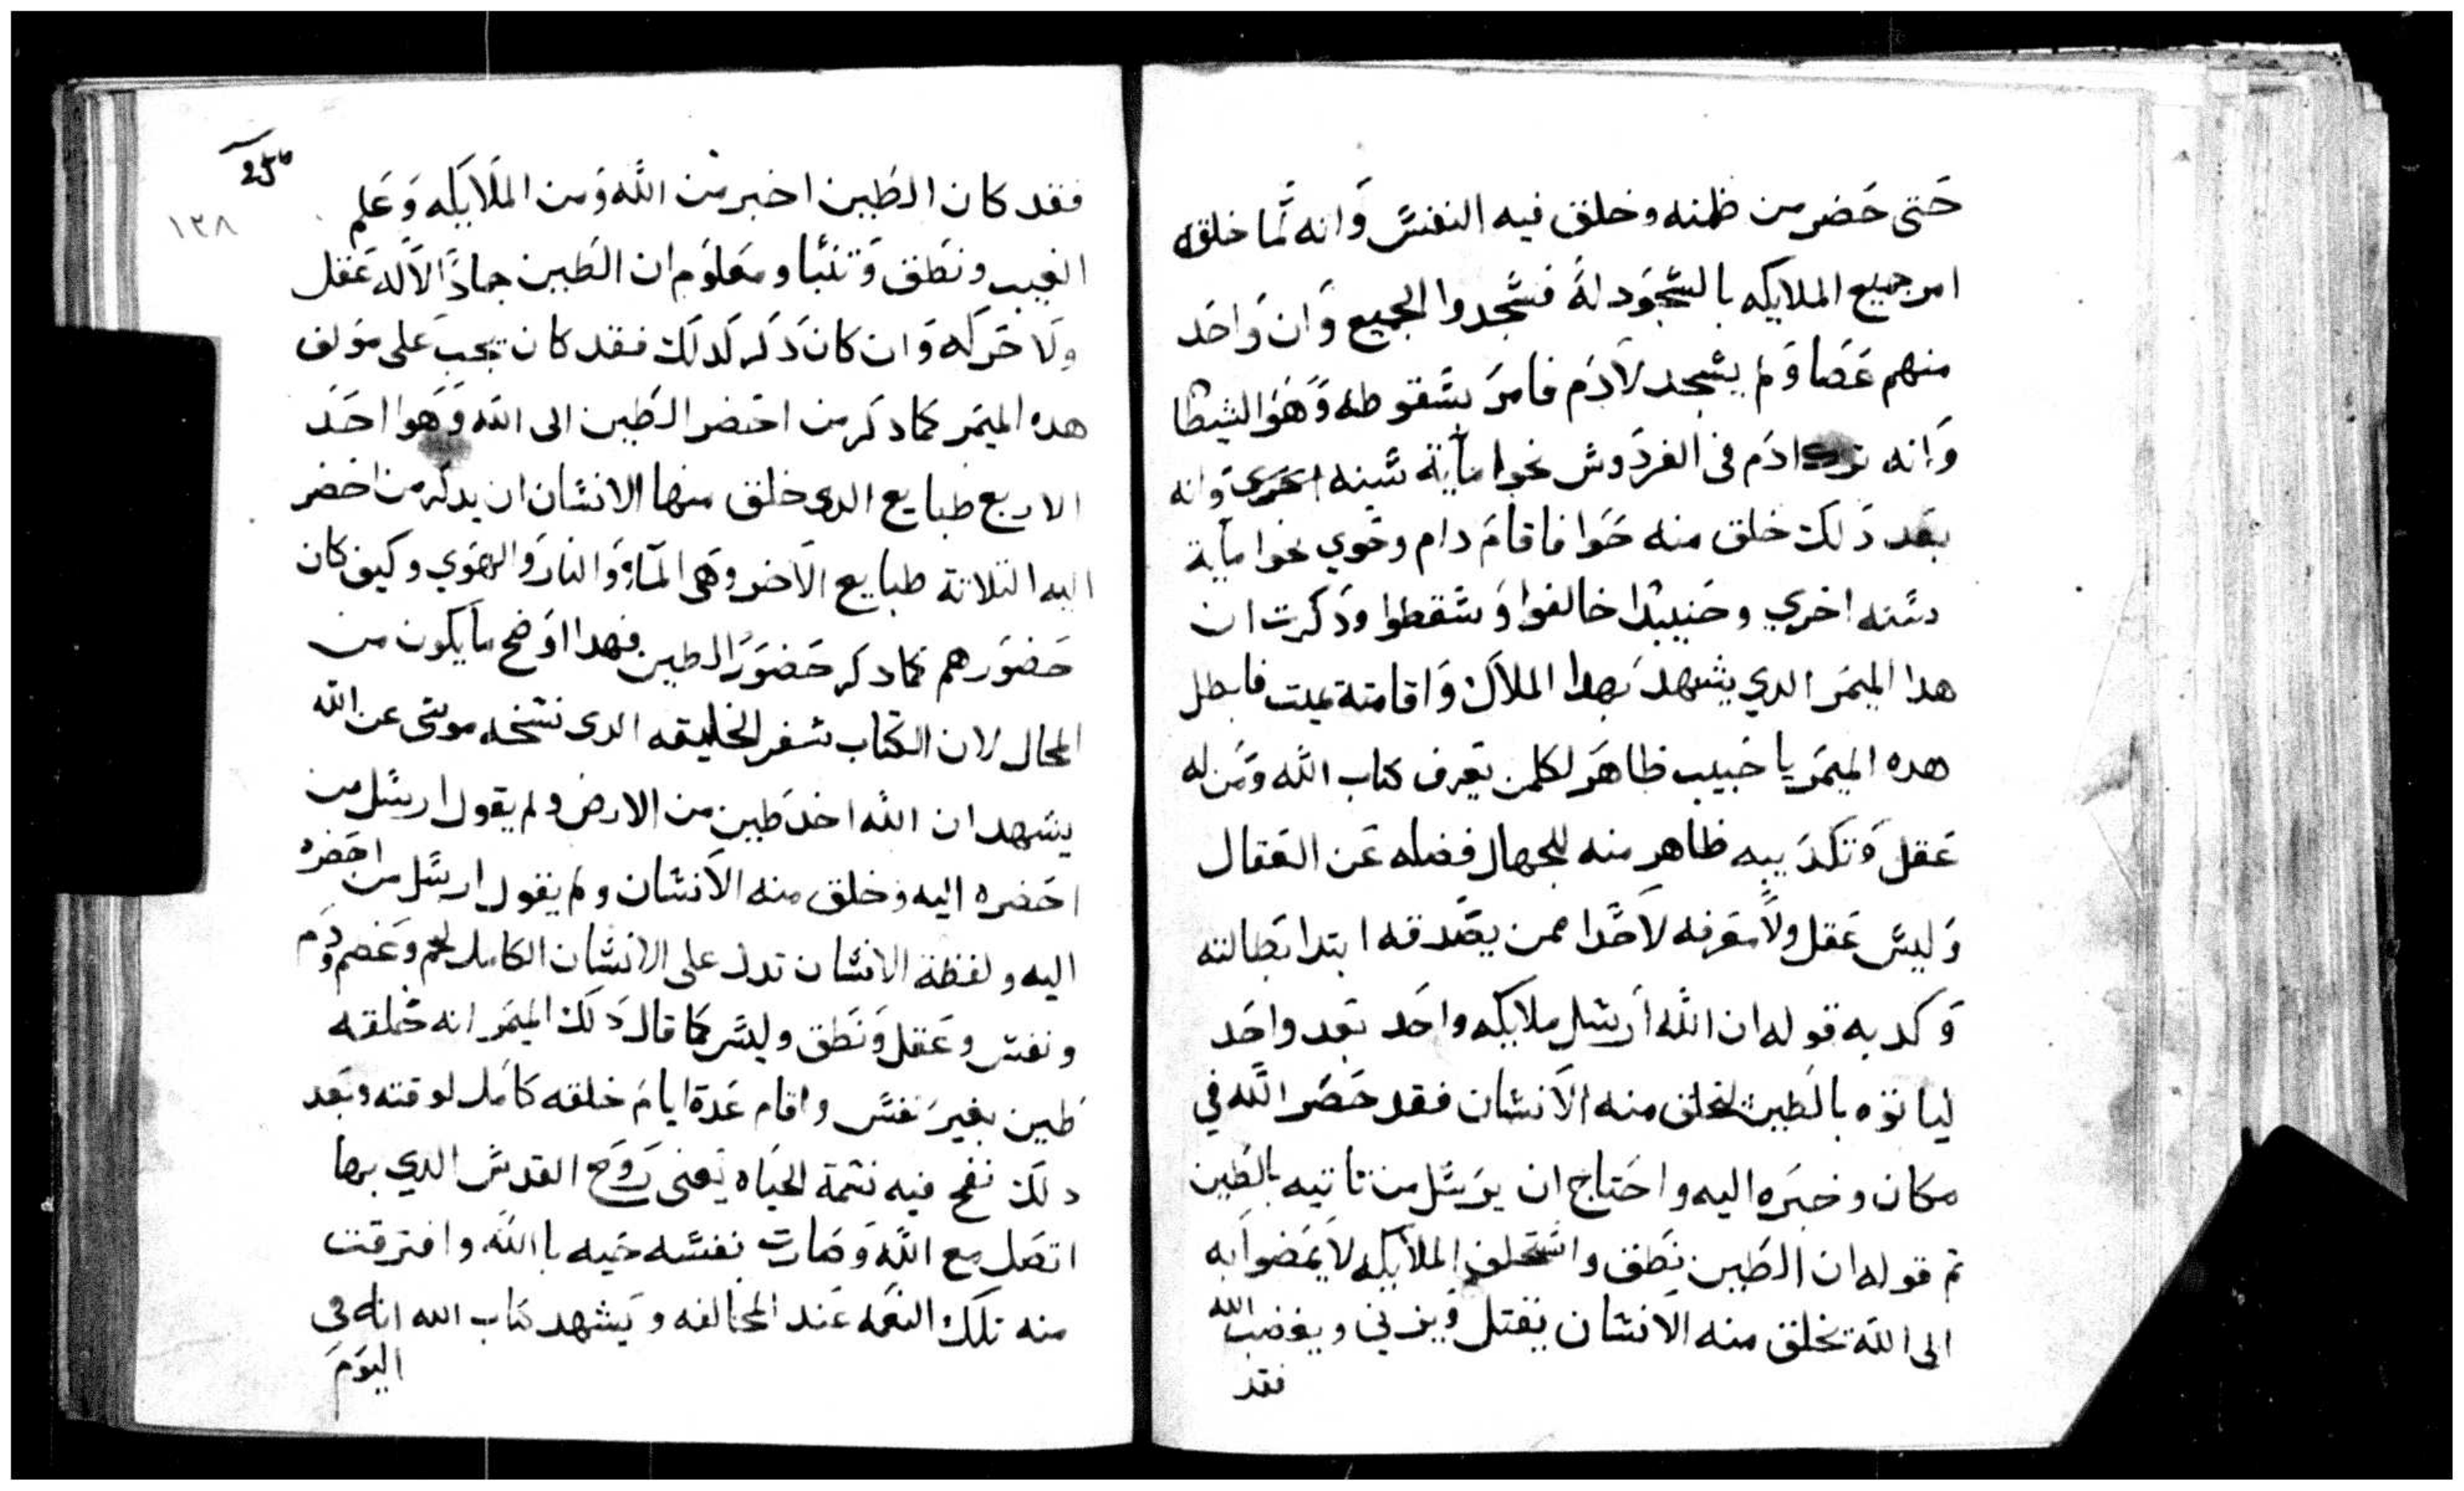 حتى حضر من ظمنه وخلق فيه النفس وانه لما خلقه
امر جميع الملايكه بالسجود له فسجدوا الجميع وان واحد
منهم عصا ولم يسجد لادم فامر بسقوطه وهوا الشيطا
وانه ترك ادم فى الفردوس نحوا مآية سنه اخرى وانه
بعد دلك خلق منه حوا فاقام دام وحوي نحوا مآية
سنه اخري وحنييدا خالفوا وسقطوا ودكرت ان
هدا الميمر الدي يشهد بهدا الملاك واقامتة عيت فابطل
هده الميمر يا حبيب ظاهر لكلمن يعرف كتاب الله ومن له
عقل وتكديبه ظاهر منه للجهال فضله عن العقال
وليس عقل ولا معرفه لاحدا ممن يصدقه ابتدا بطالته
وكدبه قوله ان الله ارسل ملايكه واحد بعد واحد
لياتوه بالطين لخلق منه الانسان فقد حصر الله في
مكان وحيزه اليه واحتاج ان يرسل من تاتيه بالطين
تم قوله ان الطين نطق واستحلف الملايكه لا يمضوا به
الى الله تخلق منه الانسان يقتل ويزني ويغضب الله
فقد
٢٥٠
١٣٨
فقد كان الطين اخبر من الله ومن الملايكه وعلم
الغيب ونطق وتنبا ومعلوم ان الطين جمادا لا له عقل
ولا حركه وان كان دكر لدلك فقد كان يجب على مولف
هده الميمر كما دكر من احضر الطين الى الله وهوا احد
الاربع طبايع الدي خلق منها الانسان ان يدكر من احضر
اليه التلاتة طبايع الاخر وهى المآء والنار والهوي وكيف كان
حضورهم كما دكر حضور الطين فهدا اوضح ما يكون من
المحال لان الكتاب سفر الخليقه الدى نسخه موسى عن الله
يشهد ان الله اخد طين من الارض ولم يقول ارسل من
احضره اليه وخلق منه الانسان ولم يقول ارسل من احضره
اليه ولفظة الانسان تدل على الانسان الكامل لحم وعضم ودم
ونفس وعقل ونطق وليس كما قال دلك الميمر انه خلقه
طين بغير نفس واقام عدة ايام خلقه كامل لوقته وبعد
دلك نفح فيه نسمة الحياه يعنى روح القدس الدي بها
اتصل مع الله وصارت نفسه حيه بالله وافترقت
منه تلك النعمه عند المخالفه ويشهد كتاب الله انه فى
اليوم